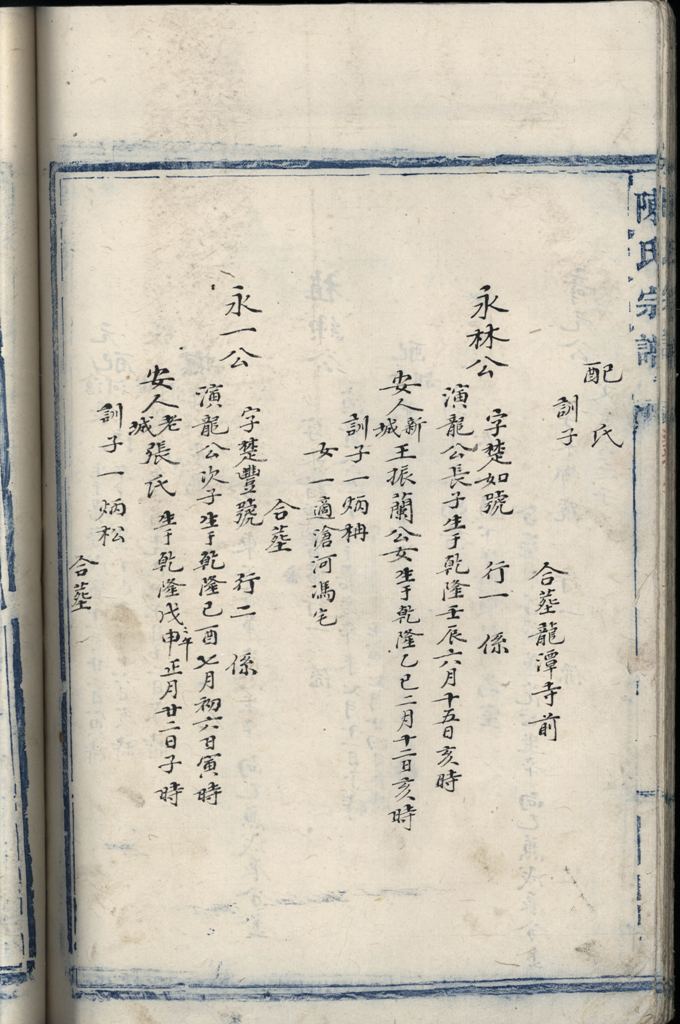 陳氏宗譜
配 氏
訓子
合墓龍潭寺前
永林公
字楚如號 行一 係
演龍公長子生于乾隆壬辰六月十五日亥時
安人新城王振蘭公女生于乾隆乙巳二月十二日亥時
訓子一炳
女一適滄河馮宅
合墓
永一公
字楚豐號 行二 係
演龍公次子生于乾隆己酉七月初六日寅時
安人老城張氏生于乾隆戊申年正月廿二日子時
訓子一炳松
合墓